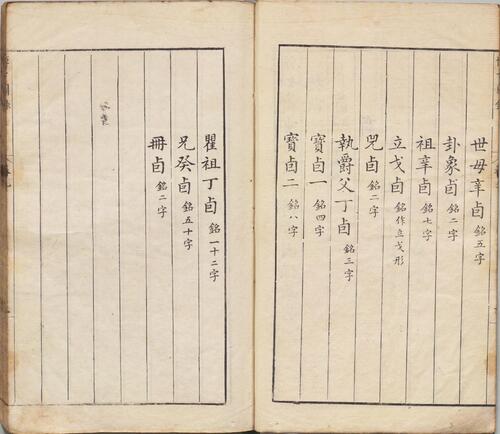 世母辛卣 銘五字
卦象卣 銘二字
祖辛卣 銘七字
立戈卣 銘作立戈形
兕卣 銘二字
執爵父丁卣 銘三字
寶卣一 銘四字
寶卣二 銘八字
瞿祖丁卣 銘一十二字
兄癸卣 銘五十字
冊卣 銘二字